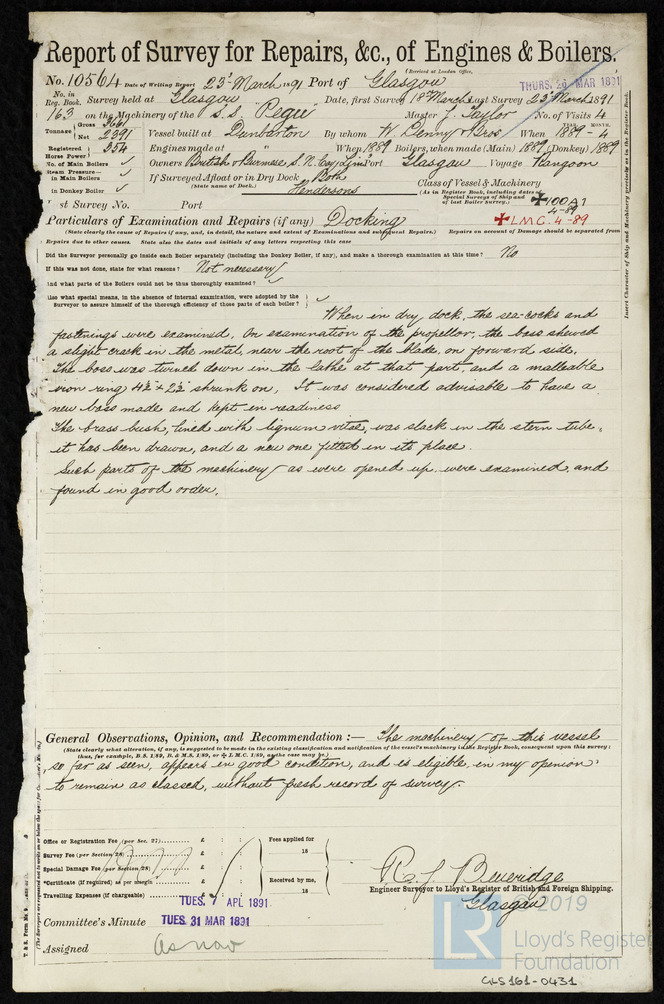 Report of Survey for Repairs, &c., of Engines & Boilers.
(Received at London Office,
THURS. 26 MAR 1891
No. 10564 Date of Writing Report 23d March 1891 Port of Glasgow
No. in Reg. Book. Survey held at Glasgow Date, first Survey 18th March Last Survey 23d March 1891
163 on the Machinery of the S.S. "Pegu" Master J. Taylor No. of Visits 4
Tonnage Gross 3661 Net 2391 Vessel built at Dumbarton By whom W. Denny & Bros When YEAR. 1889 - MONTH. 4
Registered Horse Power 354 Engines made at " When 1889 Boilers, when made (Main) 1889 (Donkey) 1889
No. of Main Boilers ✓ Owners British & Burmese S. N. Coy Limd Port Glasgow Voyage Rangoon
Steam Pressure— in Main Boilers ✓ If Surveyed Afloat or in Dry Dock Both Class of Vessel & Machinery
in Donkey Boiler ✓ (State name of Dock.) Hendersons (As in Register Book, including dates of Special Surveys of Ship and of last Boiler Survey.) ✠100A1 4-89
st Survey No. Port
✠L.M.C. 4-89
Particulars of Examination and Repairs (if any) Docking
(State clearly the cause of Repairs if any, and, in detail, the nature and extent of Examinations and subsequent Repairs.) Repairs on account of Damage should be separated from
Repairs due to other causes. State also the dates and initials of any letters respecting this case
Did the Surveyor personally go inside each Boiler separately (including the Donkey Boiler, if any), and make a thorough examination at this time? No
If this was not done, state for what reasons? Not necessary
And what parts of the Boilers could not be thus thoroughly examined? ✓
Also what special means, in the absence of internal examination, were adopted by the
Surveyor to assure himself of the thorough efficiency of those parts of each boiler? ✓
When in dry dock, the sea-cocks and
fastenings were examined. On examination of the propellor, the boss shewed
a slight crack in the metal, near the root of the blade, on forward side.
The boss was turned down in the lathe at that part, and a malleable
iron ring 4½" x 2½" shrunk on. It was considered advisable to have a
new boss made and kept in readiness
The brass bush, lined with lignum vitæ, was slack in the stern tube,
it has been drawn, and a new one fitted in its place.
Such parts of the machinery as were opened up were examined and
found in good order.
General Observations, Opinion, and Recommendation :— The machinery of this vessel
(State clearly what alteration, if any, is suggested to be made in the existing classification and notification of the vessel's machinery in the Register Book, consequent upon this survey;
thus, for example, B.S. 1/89, B.& M.S. 1/89, or ✠ L.M.C. 1/89, as the case may be.)
so far as seen, appears in good condition, and is eligible, in my opinion
to remain as classed, without fresh record of survey.
Office or Registration Fee (per Sec. 27) £ : : Fees applied for
Survey Fee (per Section 28) £ : : 18
Special Damage Fee (per Section 28) £ : :
*Certificate (if required) as per margin £ : : Received by me,
Travelling Expenses (if chargeable) £ : : 18
R. J. Beveridge
Engineer Surveyor to Lloyd's Register of British and Foreign Shipping.
Glasgow
TUES. 7 APL 1891
Committee's Minute TUES. 31 MAR 1891
Assigned As now
Insert Character of Ship and Machinery precisely as in the Register Book.
LR
2019
Lloyd's Register
Foundation
GLS161-0431